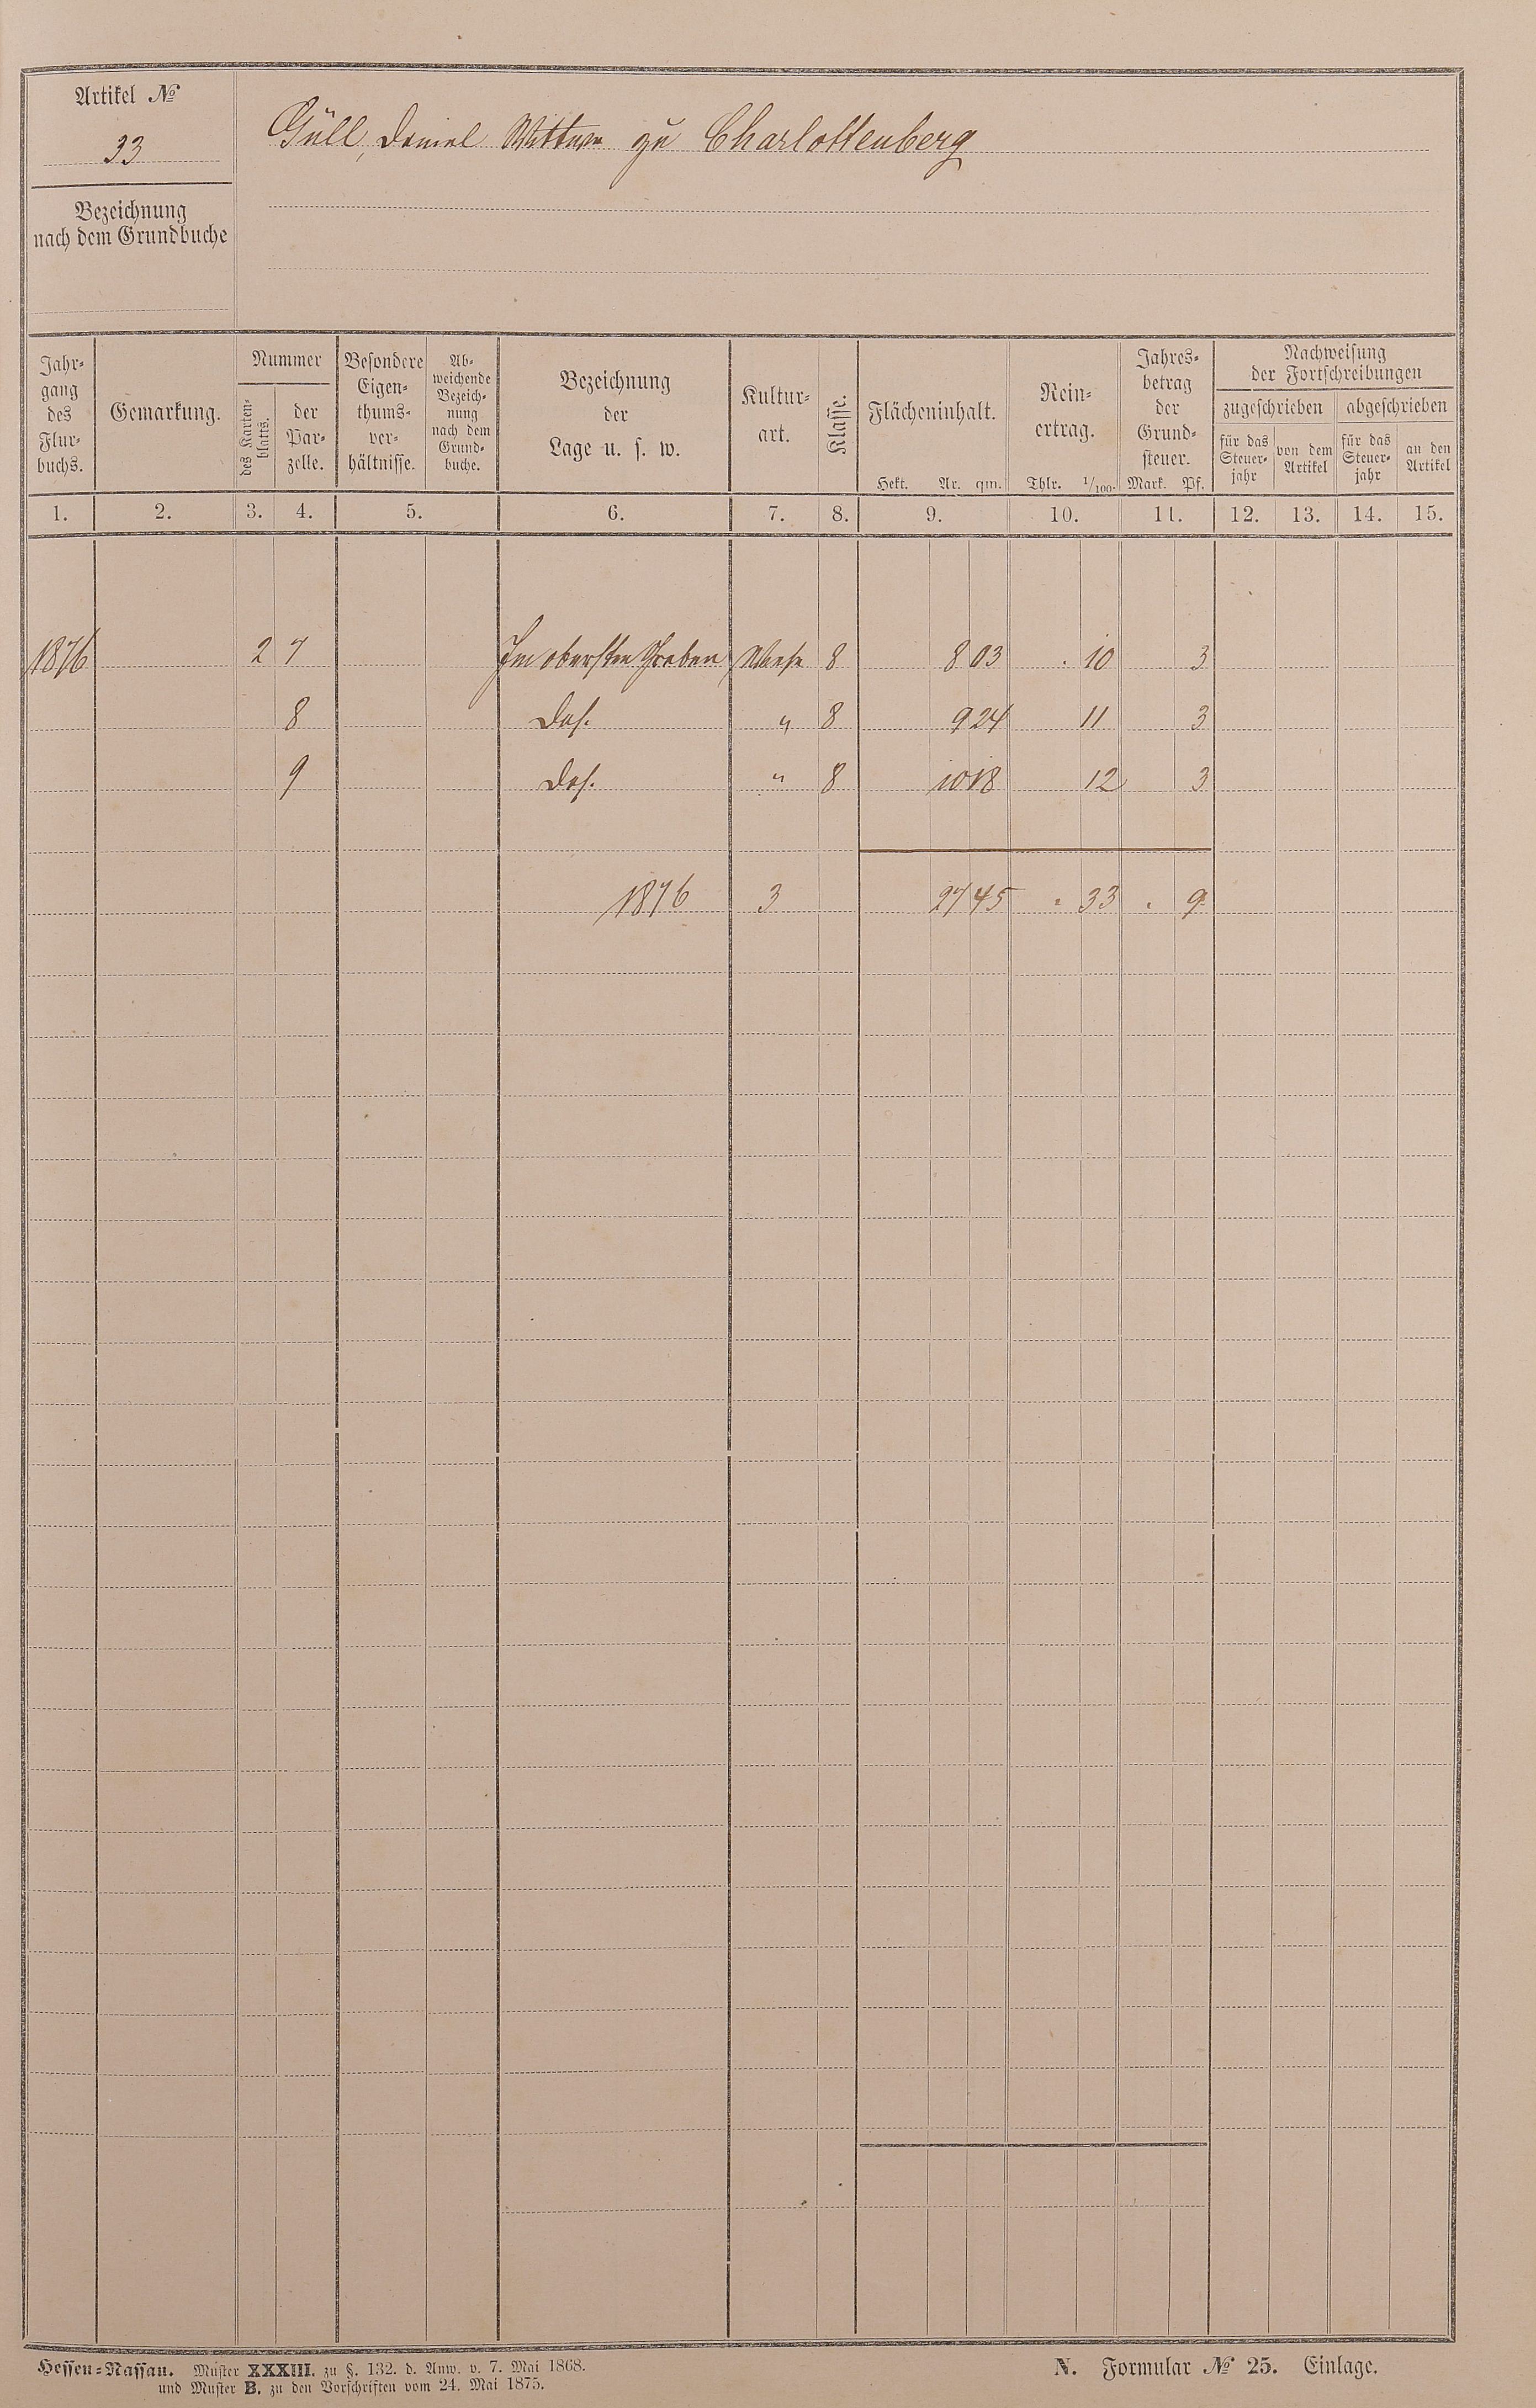 Artikel №
33
Güll, Daniel Wittwe zu Charlottenberg
Bezeichnung
nach dem Grundbuche
Jahr-
gang
des
Flur-
buchs.
Gemarkung.
Nummer
des Karten-
blatts.
der
Par-
zelle.
Besondere
Eigen-
thums-
ver-
hältnisse.
Ab-
weichende
Bezeich-
nung
nach dem
Grund-
buche.
Bezeichnung
der
Lage u. s. w.
Kultur-
art.
Klasse.
Flächeninhalt.
Hekt. Ar. qm.
Rein-
ertrag.
Thlr. 1/100.
Jahres-
betrag
der
Grund-
steuer.
Mark. Pf.
Nachweisung
der Fortschreibungen
zugeschrieben abgeschrieben
für das
Steuer-
jahr
von dem
Artikel
für das
Steuer-
jahr
an den
Artikel
1. 2. 3. 4. 5. 6. 7. 8. 9. 10. 11. 12. 13. 14. 15.
1876 2 7 Im obersten Graben Wiese 8 8 03 . 10 3
8 Das. " 8 9 24 11 3
9 Das. " 8 10 18 12 3
1876 3 27 45 . 33 . 9
Hessen-Nassau. Muster XXXIII. zu §. 132. d. Anw. v. 7. Mai 1868.
und Muster B. zu den Vorschriften vom 24. Mai 1875.
N. Formular № 25. Einlage.